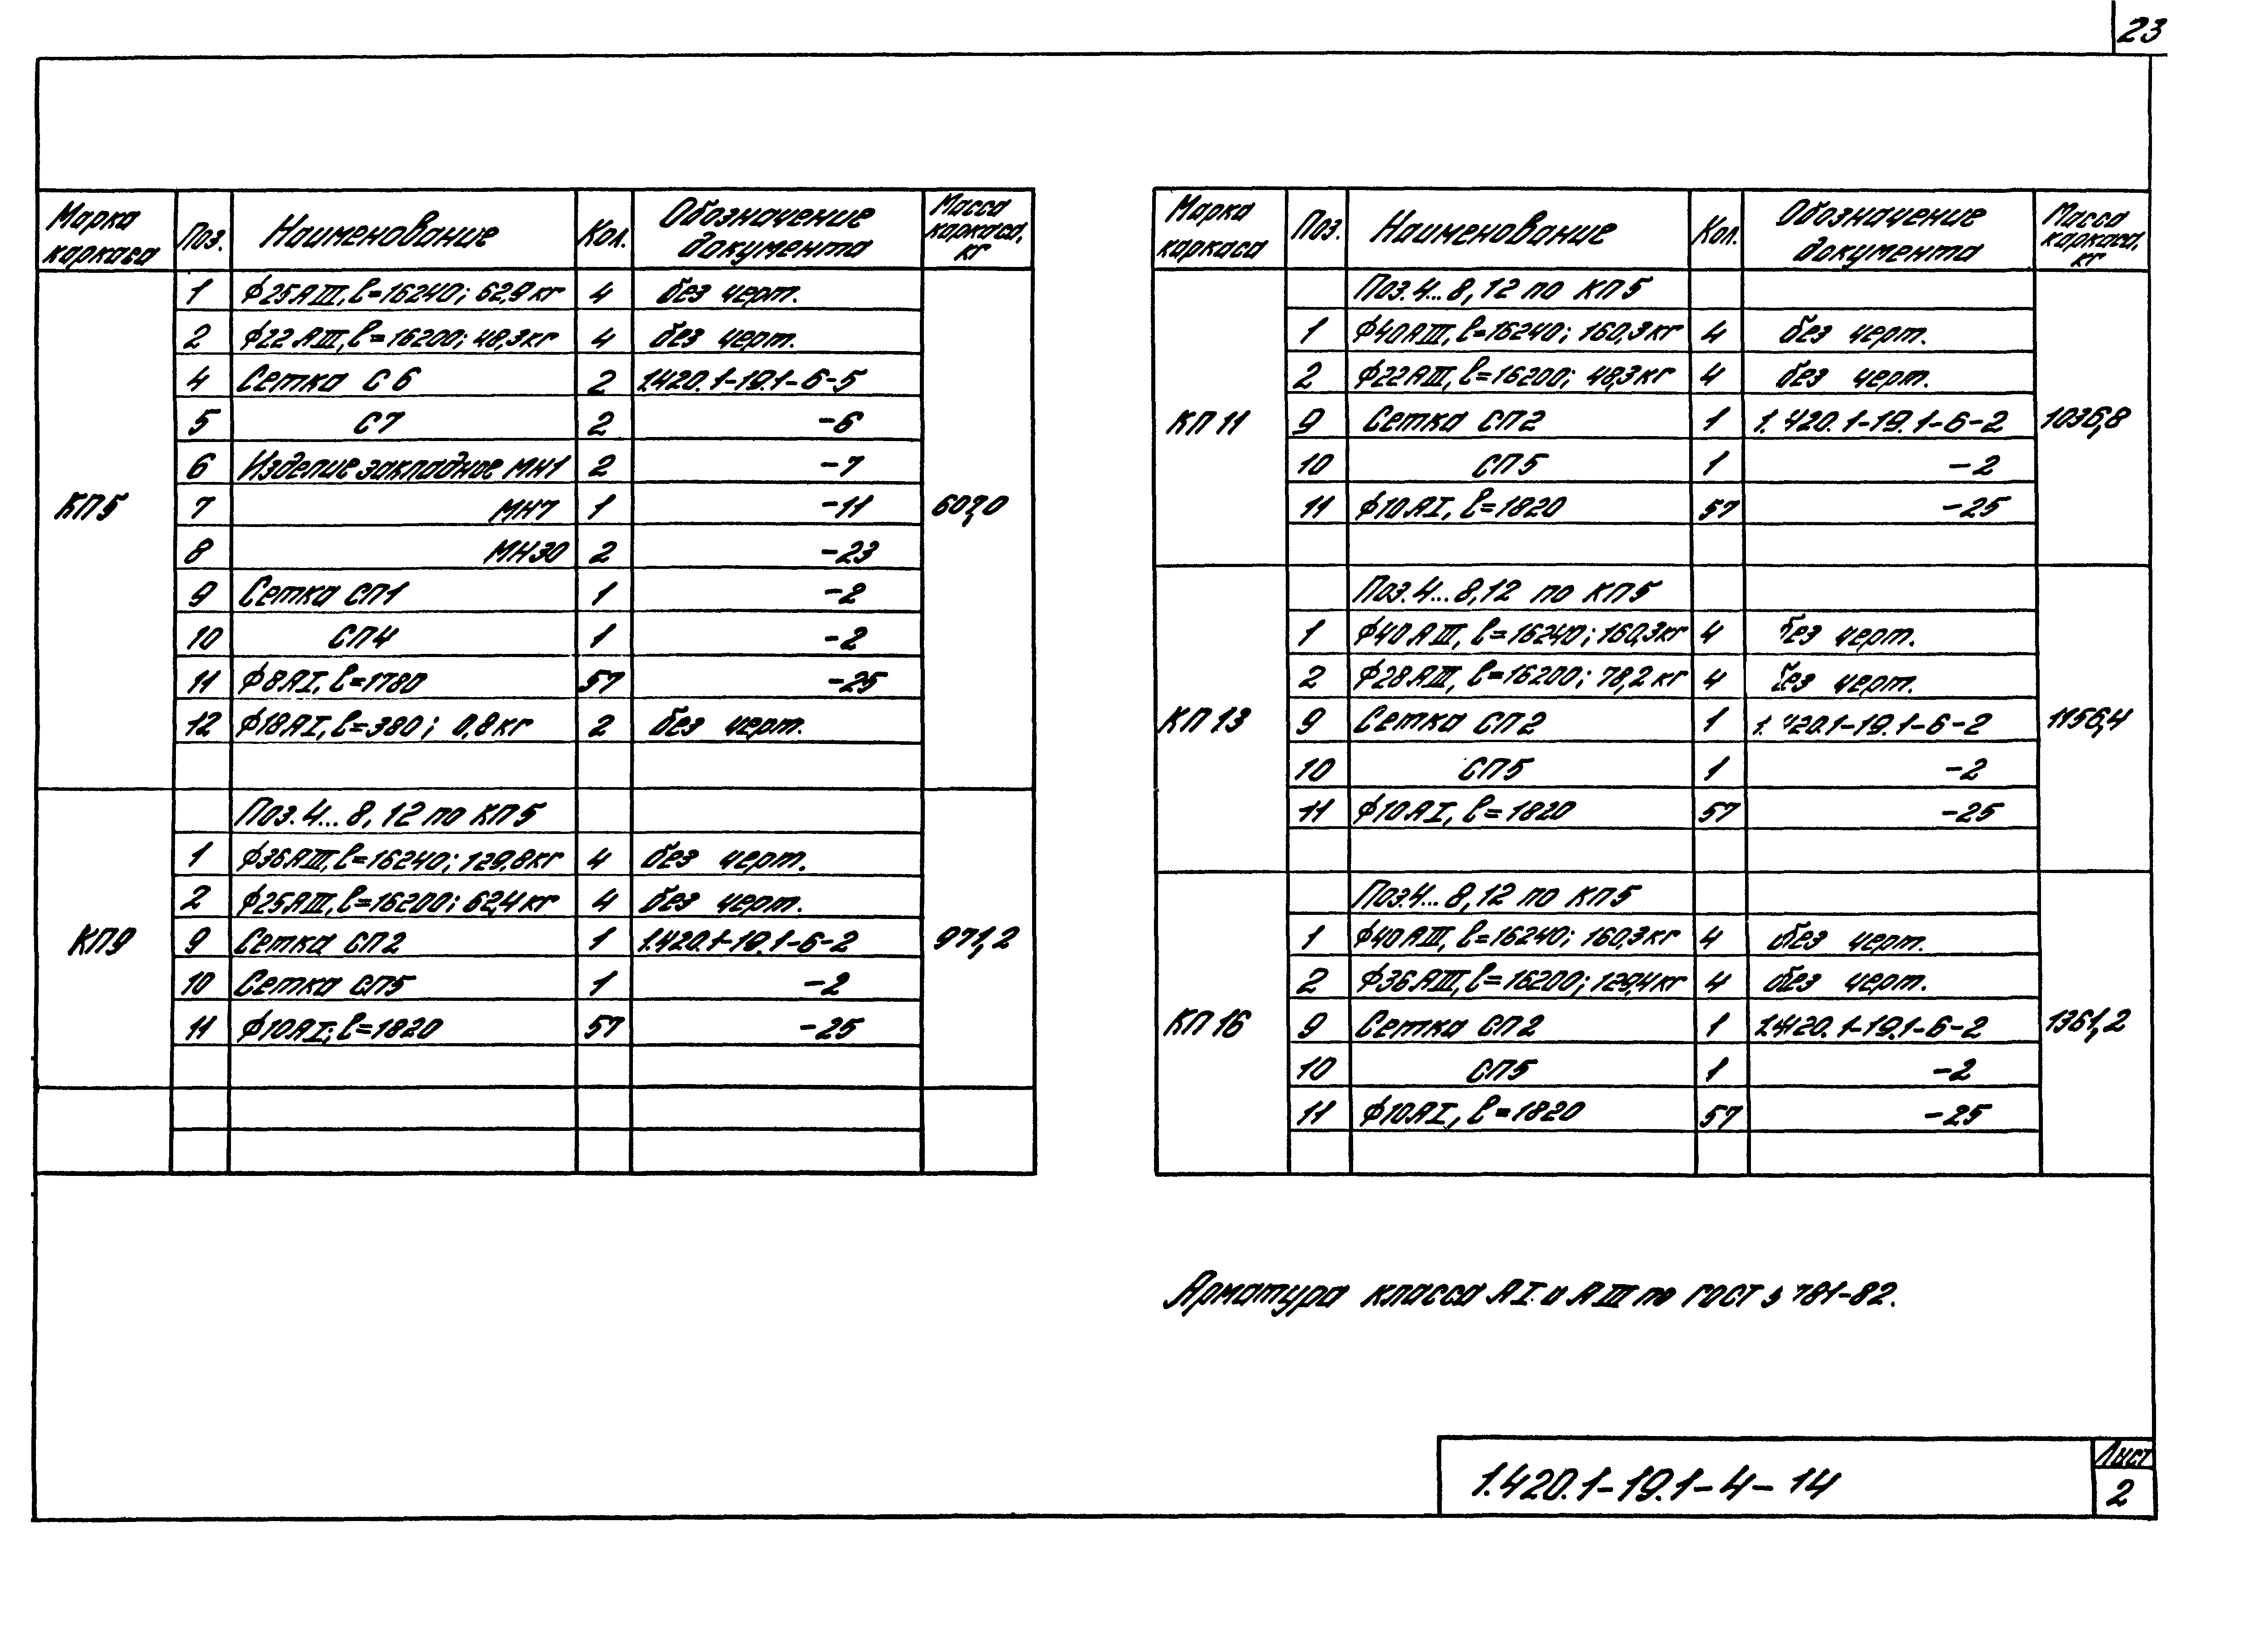 23
Марка каркаса Поз. Наименование Кол. Обозначение документа Масса каркаса, кг
КП5
1 ф25АIII, ℓ=16240; 62,9кг 4 без черт.
2 ф22АIII, ℓ=16200; 48,3кг 4 без черт.
4 Сетка С6 2 1.420.1-19.1-6-5
5 С7 2 -6
6 Изделие закладное МН1 2 -7
7 МН7 1 -11
8 МН30 2 -23
9 Сетка СП1 1 -2
10 СП4 1 -2
11 ф8АI, ℓ=1780 57 -25
12 ф18АI, ℓ=380; 0,8кг 2 без черт.
607,0
КП9
Поз. 4...8, 12 по КП5
1 ф36АIII, ℓ=16240; 129,8кг 4 без черт.
2 ф25АIII, ℓ=16200; 62,4кг 4 без черт.
9 Сетка СП2 1 1.420.1-19.1-6-2
10 Сетка СП5 1 -2
11 ф10АI; ℓ=1820 57 -25
971,2
Марка каркаса Поз. Наименование Кол. Обозначение документа Масса каркаса, кг
КП11
Поз. 4...8, 12 по КП5
1 ф40АIII, ℓ=16240; 160,3кг 4 без черт.
2 ф22АIII, ℓ=16200; 48,3кг 4 без черт.
9 Сетка СП2 1 1.420.1-19.1-6-2
10 СП5 1 -2
11 ф10АI, ℓ=1820 57 -25
1036,8
КП13
Поз. 4...8, 12 по КП5
1 ф40АIII, ℓ=16240; 160,3кг 4 без черт.
2 ф28АIII, ℓ=16200; 78,2кг 4 без черт.
9 Сетка СП2 1 1.420.1-19.1-6-2
10 СП5 1 -2
11 ф10АI, ℓ=1820 57 -25
1156,4
КП16
Поз. 4...8, 12 по КП5
1 ф40АIII, ℓ=16240; 160,3кг 4 без черт.
2 ф36АIII, ℓ=16200; 129,4кг 4 без черт.
9 Сетка СП2 1 1.420.1-19.1-6-2
10 СП5 1 -2
11 ф10АI, ℓ=1820 57 -25
1361,2
Арматура класса АI и АIII по ГОСТ 5781-82.
1.420.1-19.1-4-14
Лист
2